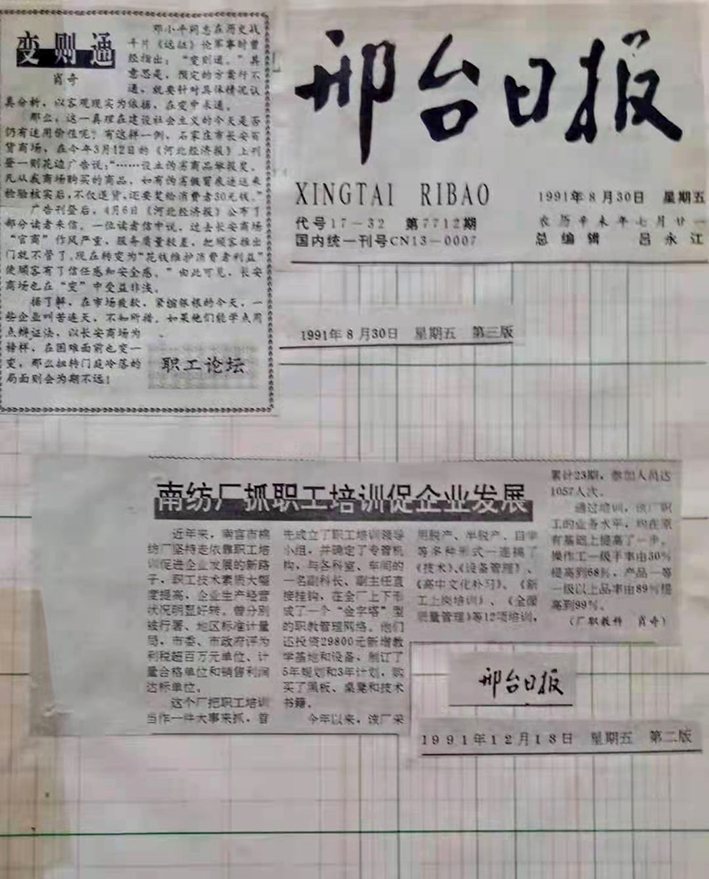 变则通
肖奇
邓小平同志在历史战
千片《远征》论军事时曾
经指出：“变则通。”其
意思是，预定的方案行不
通，就要针对具体情况认
真分析，以客观现实为依据，在变中求通。
那么，这一真理在建设社会主义的今天是否
仍有适用价值呢？有这样一例，石家庄市长安百
货商场，在今年3月12日的《河北经济报》上刊
登一则花边广告说：“……设立伪劣商品举报奖。
凡从我商场购买的商品，如有伪劣假冒表述送来
检验核实后，不仅退货，还要奖给消费者30元钱。”
广告刊登后，4月6日《河北经济报》公布了
部分读者来信。一位读者信中说，过去长安商场
“官商”作风严重，服务质量较差，把顾客推出
门就不管了。现在转变为“花钱维护消费者利益”
使顾客有了信任感和安全感。”由此可见，长安
商场也在“变”中受益非浅。
据了解，在市场疲软，紧缩银根的今天，一
些企业叫苦连天，不知所措。如果他们能学点用
点辩证法，以长安商场为
榜样，在困难面前也变一
变，那么扭转门庭冷落的
局面则会为期不远！
职工论坛
邢台日报
XINGTAI RIBAO
代号17—32 第7712期
国内统一刊号CN13—0007
1991年8月30日 星期五
农历辛未年七月廿一
总编辑 吕永江
1991年8月30日 星期五 第三版
南纺厂抓职工培训促企业发展
近年来，南宫市棉
纺厂坚持走依靠职工培
训促进企业发展的新路
子，职工技术素质大幅
度提高，企业生产经营
状况明显好转，曾分别
被行署、地区标准计量
局，市委、市政府评为
利税超百万元单位、计
量合格单位和销售利润
达标单位。
这个厂把职工培训
当作一件大事来抓，首
先成立了职工培训领导
小组，并确定了专管机
构，与各科室、车间的
一名副科长、副主任直
接挂钩，在全厂上下形
成了一个“金字塔”型
的职教管理网络。他们
还投资29800元新增教
学基地和设备，制订了
5年规划和3年计划，购
买了黑板、桌凳和技术
书籍。
今年以来，该厂采
用脱产、半脱产、自学
等多种形式一连搞了
《技术》、《设备管理》、
《高中文化补习》、《新
工上岗培训》、《全面
质量管理》等12项培训，
累计23期，参加人员达
1057人次。
通过培训，该厂职
工的业务水平，均在原
有基础上提高了一步。
操作工一级手率由30%
提高到68%，产品一等
一级以上品率由89%提
高到99%。
（厂职教科 肖奇）
邢台日报
1991年12月13日 星期五 第二版